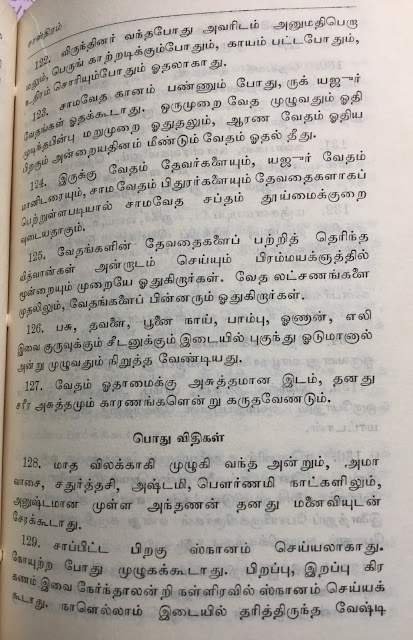 சாஸ்திரம்
122. விருந்தினர் வந்தபோது அவரிடம் அனுமதிபெரு
மலும், பெருங் காற்றடிக்கும்போதும், காயம் பட்டபோதும்,
உதிரம் சொரியும்போதும் ஓதலாகாது.
123. சாமவேத கானம் பண்ணும் போது, ருக் யஜுர்
வேதங்கள் ஓதக்கூடாது. ஒருமுறை வேத முழுவதும் ஓதி
முடித்தபின்பு மறுமுறை ஓதுதலும், ஆரண வேதம் ஓதிய
பிறகும் அன்றையதினம் மீண்டும் வேதம் ஓதல் தீது.
124. இருக்கு வேதம் தேவர்களையும், யஜுர் வேதம்
மானிடரையும், சாம வேதம் பிதுரர்களையும் தேவதைகளாகப்
பெற்றுள்ளபடியால் சாமவேத சப்தம் தூய்மைக்குறை
வுடையதாகும்.
125. வேதங்களின் தேவதைகளைப் பற்றித் தெரிந்த
வித்வான்கள் அன்றாடம் செய்யும் பிரம்மயக்ஞத்தில்
மூன்றையும் முறையே ஓதுகிறார்கள். வேத லட்சணங்களை
முதலிலும், வேதங்களைப் பின்னரும் ஓதுகிறார்கள்.
126. பசு, தவளை, பூனை நாய், பாம்பு, ஓணான், எலி
இவை குருவுக்கும் சீடனுக்கும் இடையில் புகுந்து ஓடுமானால்
அன்று முழுவதும் நிறுத்த வேண்டியது.
127. வேதம் ஓதாமைக்கு அசுத்தமான இடம், தனது
சரீர அசுத்தமும் காரணங்களென்று கருதவேண்டும்.
பொது விதிகள்
128. மாத விலக்காகி முழுகி வந்த அன்றும், அமா
வாசை, சதுர்த்தசி, அஷ்டமி, பௌர்ணமி நாட்களிலும்,
அனுஷ்டமான முள்ள அந்தணன் தனது மனைவியுடன்
சேரக்கூடாது.
129. சாப்பிட்ட பிறகு ஸ்நானம் செய்யலாகாது.
கோயுற்ற போது முழுகக்கூடாது. பிறப்பு, இறப்பு கிர
கணம் இவை நேர்ந்தாலன்றி நள்ளிரவில் ஸ்நானம் செய்யக்
கூடாது. நாளெல்லாம் இடையில் தரித்திருந்த வேஷ்டி